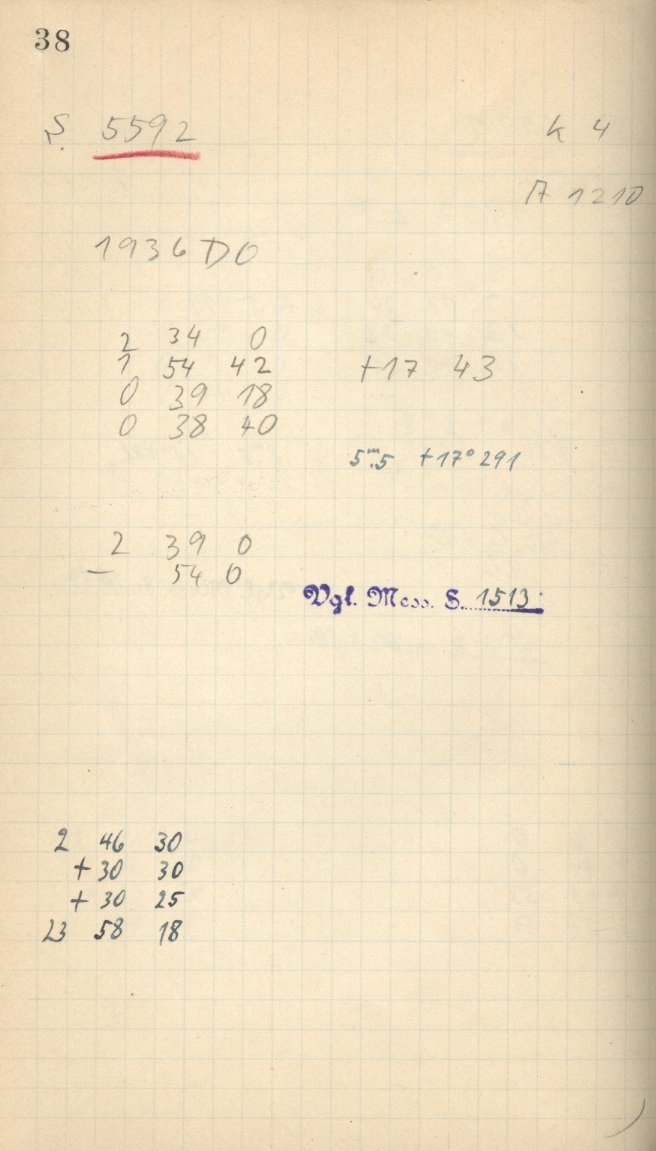 38
S 5592
K 4
A 1210
1936 DO
2 34 0
1 54 42 +17 43
0 39 18
0 38 40
5ᵐ.5 +17° 291
2 39 0
— 54 0
Vgl. Mess. S. 1513
2 46 30
+30 30
+30 25
23 58 18